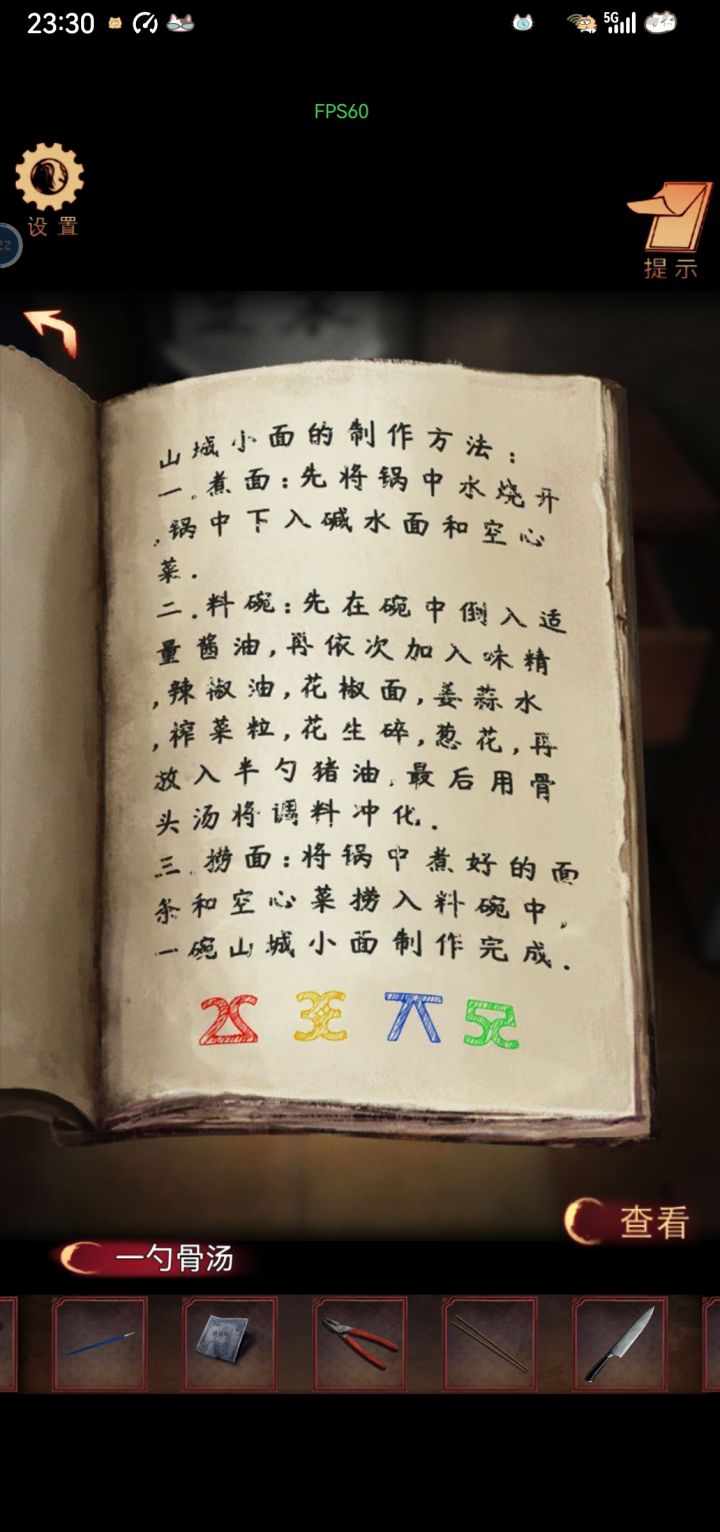 23:30
5G
FPS60
设置
提示
22
山城小面的制作方法：
一.煮面：先将锅中水烧开
,锅中下入碱水面和空心
菜.
二.料碗：先在碗中倒入适
量酱油,再依次加入味精
,辣椒油,花椒面,姜蒜水
,榨菜粒,花生碎,葱花,再
放入半勺猪油.最后用骨
头汤将调料冲化.
三.捞面：将锅中煮好的面
条和空心菜捞入料碗中,
一碗山城小面制作完成.
查看
一勺骨汤